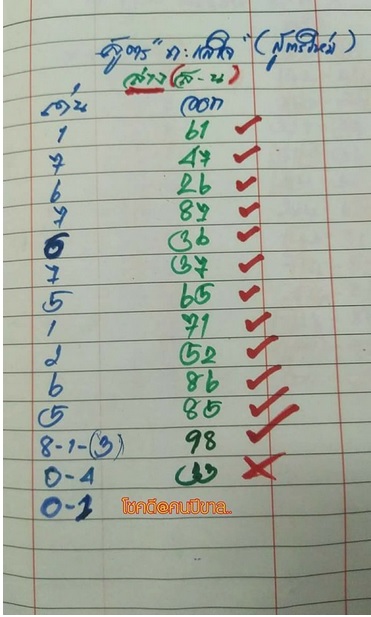 สูตร "ทะลุใจ" (สูตรใหม่)
ล่าง (ส-น)
เด่น ออก
1 61 ✓
7 47 ✓
6 26 ✓
7 87 ✓
6 36 ✓
7 37 ✓
5 65 ✓
1 71 ✓
2 52 ✓
6 86 ✓
5 85 ✓
8-1-(3) 98 ✓
0-4 33 ✗
0-1 โชคดี@คนปีขาล..